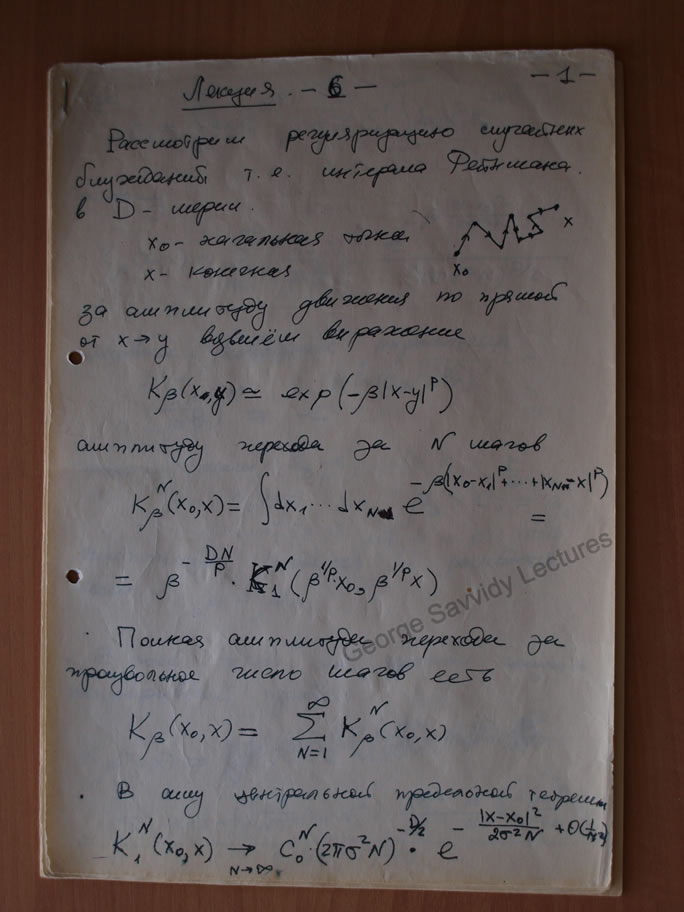 Лекция. - 6 -
- 1 -
Рассмотрим регуляризацию случайных
блужданий т.е. интеграла Фейнмана.
в D - мерии.
x₀ - начальная точка
x - конечная
x₀ x
за амплитуду движения по прямой
от x → y возьмём выражение
K_β(x₀,y) ≃ exp(-β|x-y|^P)
амплитуду перехода за N шагов
K_β^N(x₀,x) = ∫dx₁···dx_N e^{-β(|x₀-x₁|^P+···+|x_N-x|^P)} =
= β^{-DN/P} · K₁^N(β^{1/P}x₀, β^{1/P}x)
George Savvidy Lectures
· Полная амплитуда перехода за
произвольное число шагов есть
K_β(x₀,x) = Σ_{N=1}^∞ K_β^N(x₀,x)
· В силу центральной предельной теоремы
K₁^N(x₀,x) →_{N→∞} C₀^N·(2πσ²N)^{-D/2} · e^{-|x-x₀|²/2σ²N + O(